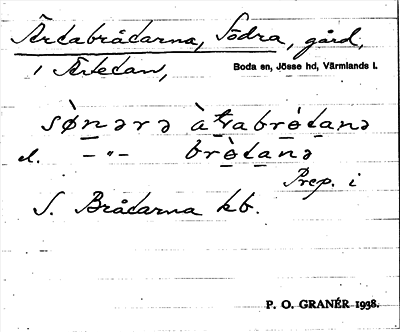 Ärtabråtarna, Södra, gård,
i Ärtetan, Boda sn, Jösse hd, Värmlands l.
sø̀nərə àʈabròtanə
el. – " – bròtanə
Prep. i
S. Bråtarna kb.
P. O. GRANÉR 1938.